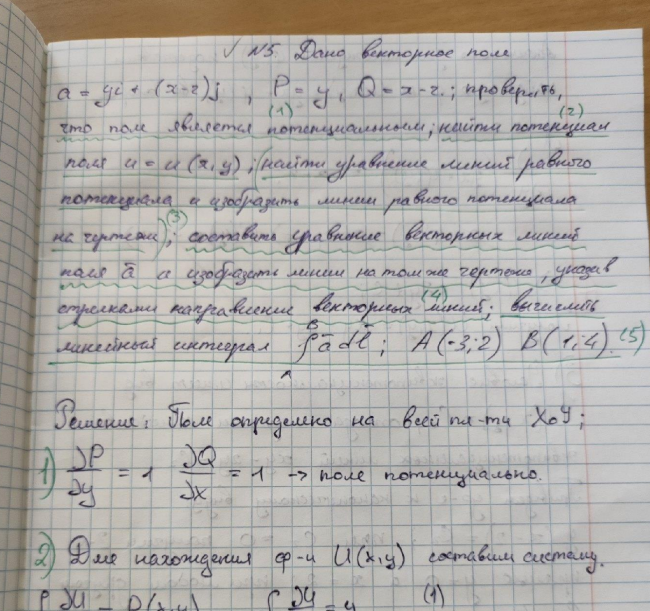 √ №5. Дано векторное поле
a = yi + (x-2)j , P = y, Q = x-2.; проверить,
что поле является потенциальным; (1) найти потенциал (2)
поля u = u(x,y); (найти уравнение линий равного
потенциала и изобразить линии равного потенциала
на чертеже) (3); составить уравнение векторных линий
поля ā и изобразить линии на том же чертеже, указав
стрелками направление векторных линий; (4) вычислить
линейный интеграл ∫ā dl̄; A(-3;2) B(1;4). (5)
B
A
Решение: Поле определено на всей пл-ти XoY;
1) ∂P/∂y = 1 ∂Q/∂x = 1 → поле потенциально.
2) Для нахождения ф-и U(x,y) составим систему.
(1)